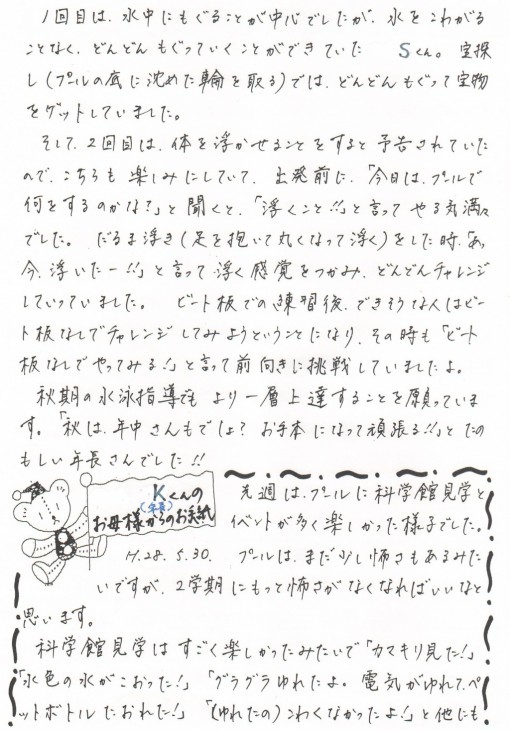 1回目は、水中にもぐることが中心でしたが、水をこわがる
ことなく、どんどんもぐっていくことができていた Sくん。宝探
し(プールの底に沈めた輪を取る)では、どんどんもぐって宝物
をゲットしていました。
そして、2回目は、体を浮かせることをすると予告されていた
ので、こちらも楽しみにしていて、出発前に、「今日は、プールで
何をするのかな?」と聞くと、「浮くこと!!」と言ってやる気満々
でした。だるま浮き(足を抱いて丸くなって浮く)をした時、「あっ、
今、浮いたー!!」と言って浮く感覚をつかみ、どんどんチャレンジ
していっていました。 ビート板での練習後、できそうな人はビー
ト板なしでチャレンジしてみようということになり、その時も「ビート
板なしでやってみる!」と言って前向きに挑戦していましたよ。
秋期の水泳指導でも より一層上達することを願っていま
す。「秋は、年中さんもでしょ? お手本になって頑張る!!」とたの
もしい年長さんでした!!
Kくんの
(年長)
お母様からのお手紙
先週は、プールに科学館見学と
イベントが多く楽しかった様子でした。
H.28.5.30. プールは、まだ少し怖さもあるみた
いですが、2学期にもっと怖さがなくなればいいなと
思います。
科学館見学はすごく楽しかったみたいで「カマキリ見た!」
「水色の水がこおった!」「グラグラゆれたよ。電気がゆれて、ペ
ットボトルたおれた!」「(ゆれたの)こわくなかったよ!」と他にも